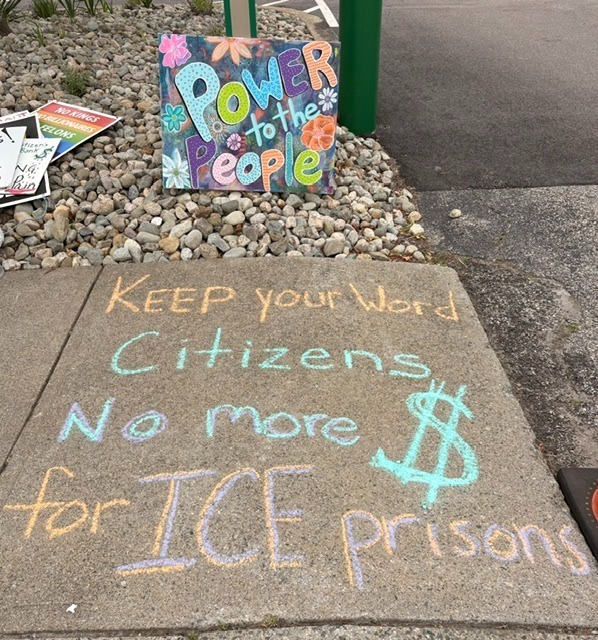 POWER
to the
People
NO KINGS
BILLIONAIRES
FELONS
KEEP your Word
Citizens
No more $
for ICE prisons